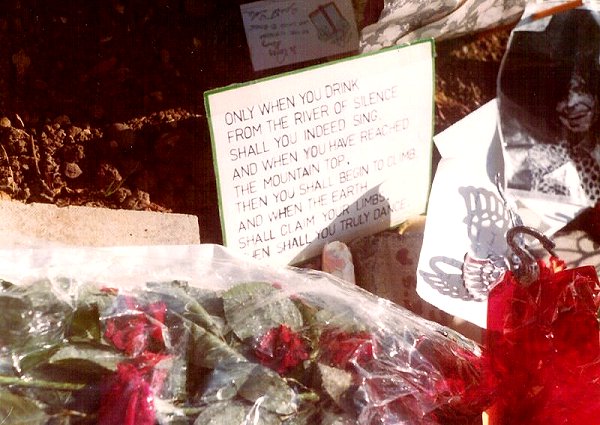 ONLY WHEN YOU DRINK
FROM THE RIVER OF SILENCE
SHALL YOU INDEED SING.
AND WHEN YOU HAVE REACHED
THE MOUNTAIN TOP,
THEN YOU SHALL BEGIN TO CLIMB.
AND WHEN THE EARTH
SHALL CLAIM YOUR LIMBS,
HEN SHALL YOU TRULY DANCE.